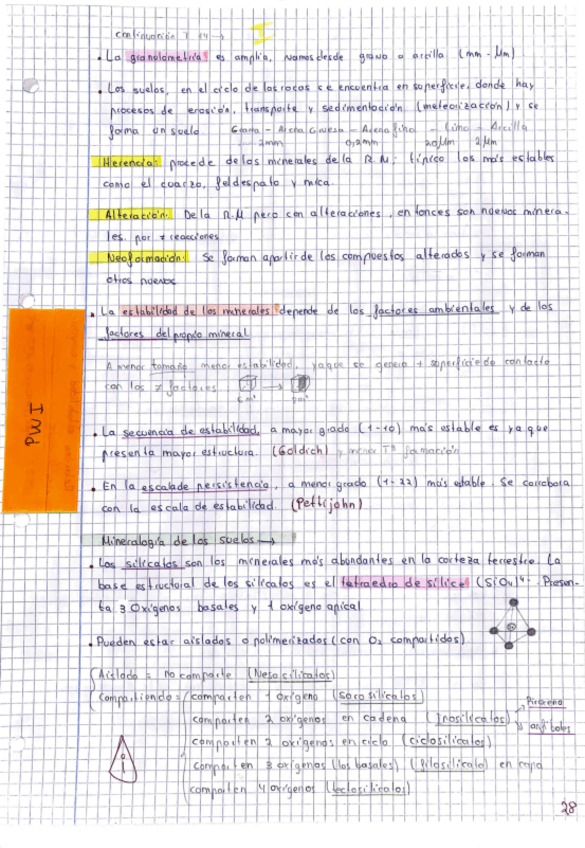 continuación T 14 → I
• La granulometría es amplia, vamos desde grava a arcilla (mm - μm)
• Los suelos, en el ciclo de las rocas se encuentra en superficie, donde hay
procesos de erosión, transporte y sedimentación (meteorización) y se
forma un suelo Grava - Arena Gruesa - Arena fina - Limo - Arcilla
2mm 0,2mm 20μm 2μm
Herencia: procede de los minerales de la R.M; típico los más estables
como el cuarzo, feldespato y mica.
Alteración: De la R.M pero con alteraciones, entonces son nuevos minera-
les por ≠ reacciones
Neoformación: Se forman apartir de los compuestos alterados y se forman
otros nuevos
• La estabilidad de los minerales depende de los factores ambientales y de los
factores del propio mineral
A menor tamaño menor estabilidad, ya que se genera + superficie de contacto
con los ≠ factores →
• La secuencia de estabilidad, a mayor grado (1-10) más estable es ya que
presenta mayor estructura. (Goldich) y menor Tª formación
• En la escala de persistencia, a menor grado (1-22) más estable. Se corrobora
con la escala de estabilidad. (Pettijohn)
PWI
Mineralogía de los suelos →
• Los silicatos son los minerales más abundantes en la corteza terrestre. La
base estructural de los silicatos es el tetraedro de sílice (SiO4)4-. Presen-
ta 3 Oxígenos basales y 1 oxígeno apical
• Pueden estar aislados o polimerizados (con O2 compartidos)
Aislado = no comparte (Nesosilicatos)
Compartiendo = comparten 1 oxígeno (sorosilicatos)
comparten 2 oxígenos en cadena (Inosilicatos) Piroxeno
anfíboles
comparten 2 oxígenos en ciclo (ciclosilicatos)
comparten 3 oxígenos (los basales) (filosilicato) en capa
comparten 4 oxígenos (tectosilicatos)
28